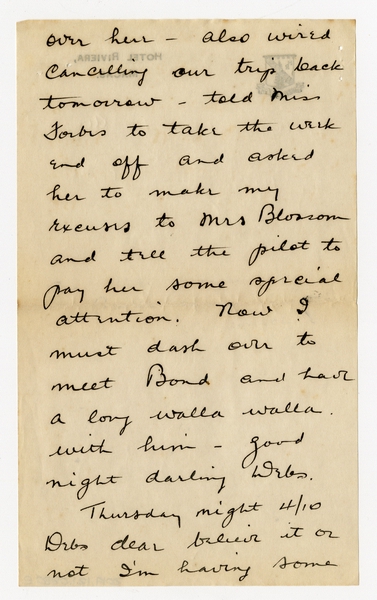 over here - also wired
cancelling our trip back
tomorrow - told Miss
Forbes to take the week
end off and asked
her to make my
excuses to Mrs Blossom
and tell the pilot to
pay her some special
attention. Now I
must dash over to
meet Bond and have
a long walla walla
with him - good
night darling Debs.
Thursday night 4/10
Debs dear believe it or
not I'm having some
HOTEL RIVIERA,